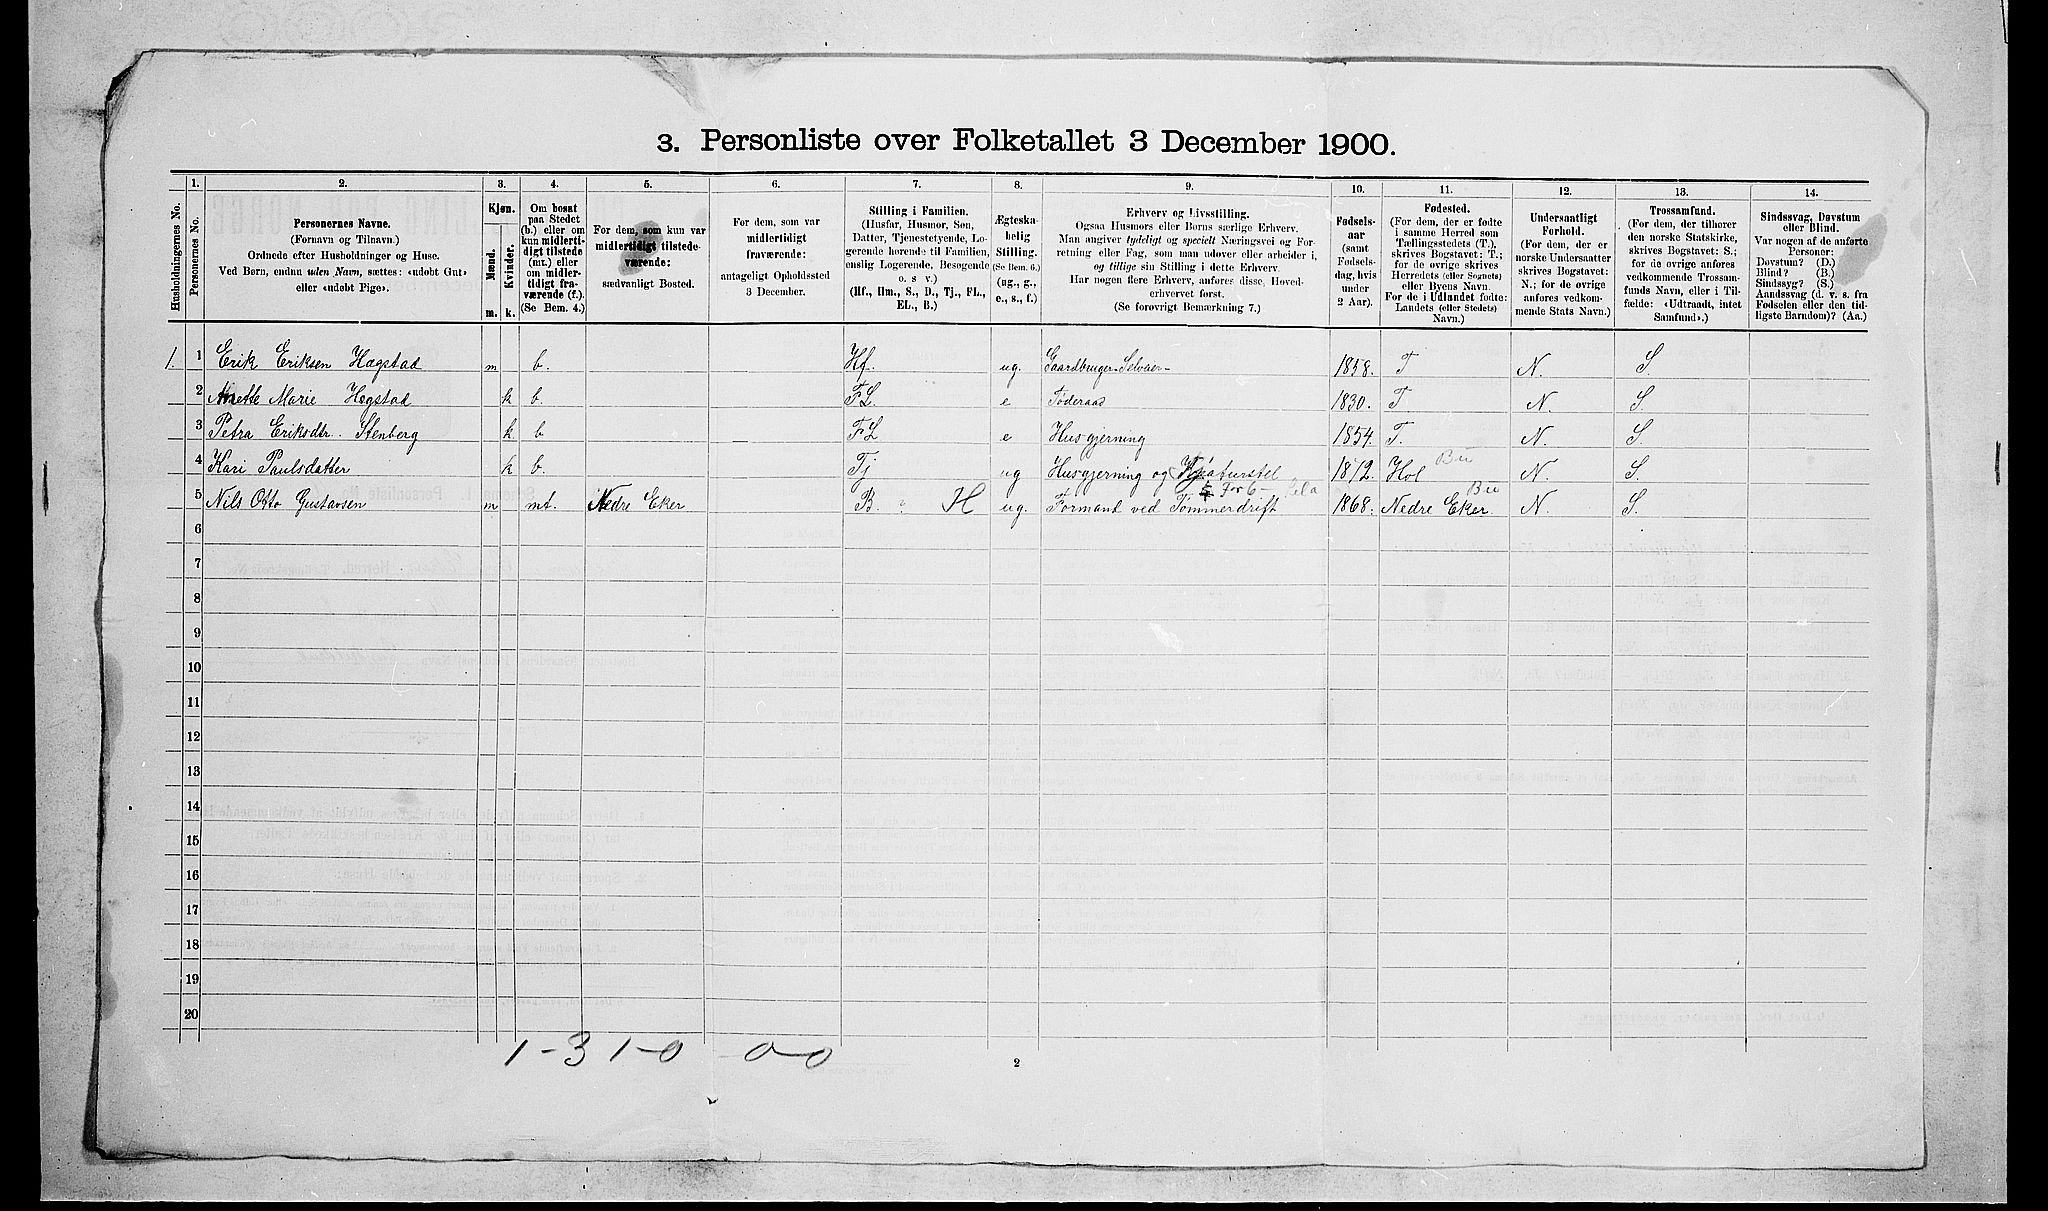 3. Personliste over Folketallet 3 December 1900.
Husholdningernes No.
1. Personernes No.
2. Personernes Navne.
(Fornavn og Tilnavn.)
Ordnede efter Husholdninger og Huse.
Ved Børn, endnu uden Navn, sættes: «udøbt Gut»
eller «udøbt Pige».
3. Kjøn.
Mænd. Kvinder.
m. k.
4. Om bosat
paa Stedet
(b.) eller om
kun midlerti-
digt tilstede
(mt.) eller
om midler-
tidigt fra-
værende (f.).
(Se Bem. 4.)
5. For dem, som kun var
midlertidigt tilstede-
værende:
sædvanligt Bosted.
6. For dem, som var
midlertidigt
fraværende:
antageligt Opholdssted
3 December.
7. Stilling i Familien.
(Husfar, Husmor, Søn,
Datter, Tjenestetyende, Lo-
gerende hørende til Familien,
enslig Logerende, Besøgende
o. s v.)
(Hf., Hm., S., D., Tj., FL.,
EL., B.)
8. Ægteska-
belig
Stilling.
(Se Bem. 6.)
(ug., g.,
e., s., f.)
9. Erhverv og Livsstilling.
Ogsaa Husmors eller Børns særlige Erhverv.
Man angiver tydeligt og specielt Næringsvei og For-
retning eller Fag, som man udøver eller arbeider i,
og tillige sin Stilling i dette Erhverv.
Har nogen flere Erhverv, anføres disse, Hoved-
erhvervet først.
(Se forøvrigt Bemærkning 7.)
10. Fødsels-
aar
(samt
Fødsels-
dag, hvis
under
2 Aar.)
11. Fødested.
(For dem, der er fødte
i samme Herred som
Tællingsstedets (T.),
skrives Bogstavet: T.;
for de øvrige skrives
Herredets (eller Sognets)
eller Byens Navn.
For de i Udlandet fødte:
Landets (eller Stedets)
Navn.)
12. Undersaatligt
Forhold.
(For dem, der er
norske Undersaatter
skrives Bogstavet:
N.; for de øvrige
anføres vedkom-
mende Stats Navn.)
13. Trossamfund.
(For dem, der tilhører
den norske Statskirke,
skrives Bogstavet: S.;
for de øvrige anføres
vedkommende Trossam-
funds Navn, eller i Til-
fælde: «Udtraadt, intet
Samfund».)
14. Sindssvag, Døvstum
eller Blind.
Var nogen af de anførte
Personer:
Døvstum? (D.)
Blind? (B.)
Sindssyg? (S.)
Aandssvag (d. v. s. fra
Fødselen eller den tid-
ligste Barndom)? (Aa.)
1. 1 Erik Eriksen Hægstad m b. Hf. ug. Gaardbruger-Selveier- 1858. T N. S.
2 Anette Marie Hegstad k b. FL. e Føderaad 1830. T. N. S.
3 Petra Eriksdtr. Stenberg k. b — FL e Husgjerning 1854. T. N. S.
4 Kari Paulsdatter k b. Tj ug Husgjerning og Kjøturstel 1872. Hol Bu N. S.
5 Nils Otto Gustavsen m mt. Nedre Eker B. ? H ug. Formand ved Tømmerdrift 1868. Nedre Eker. Bu N. S.
6
7
8
9
10
11
12
13
14
15
16
17
18
19
20
1-3 1-0 0-0
2